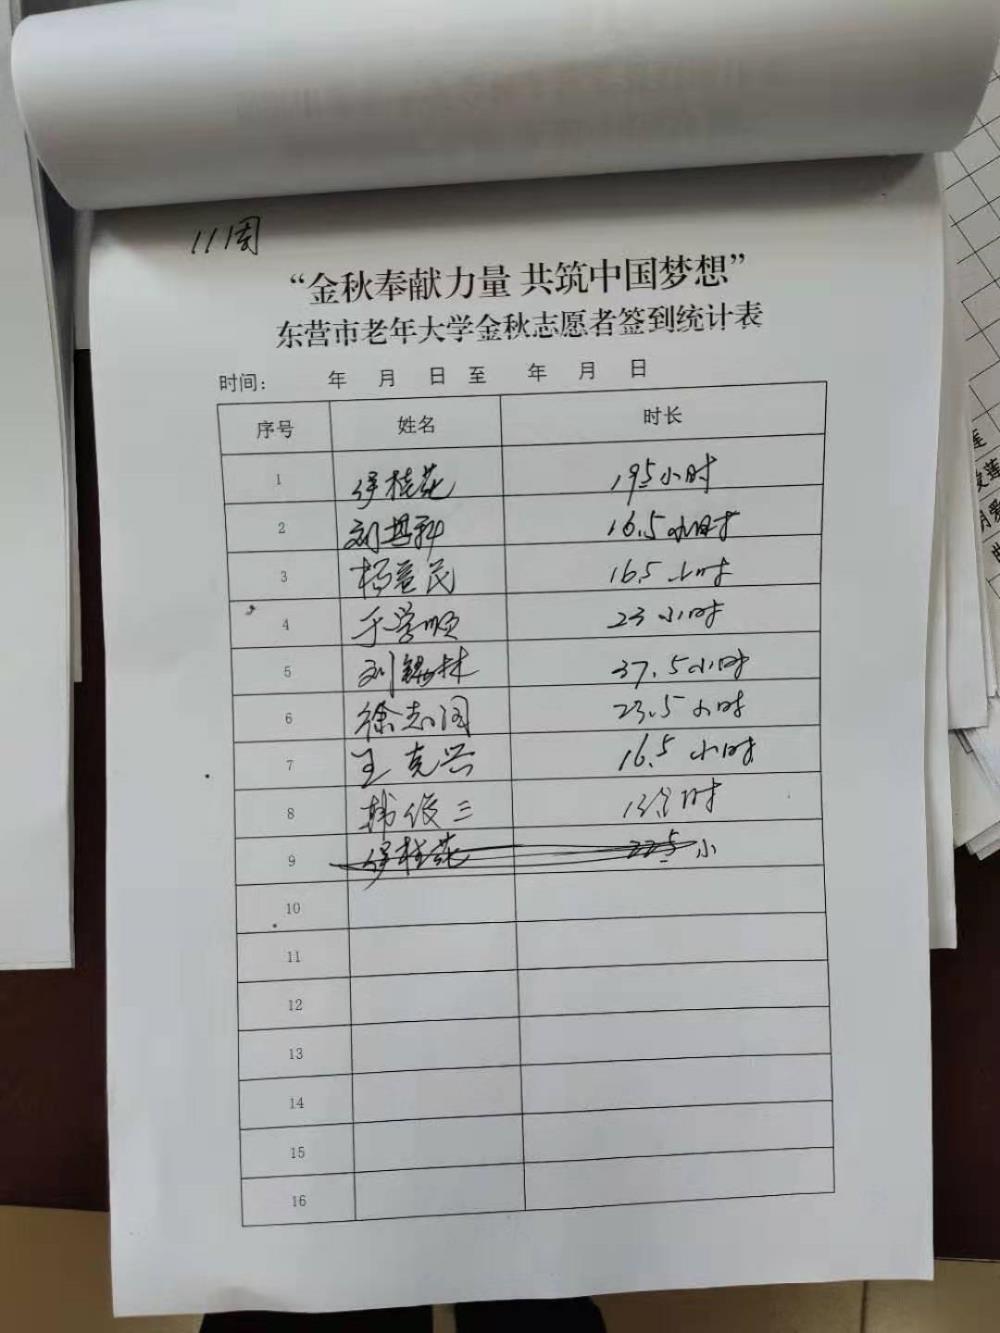 111周
“金秋奉献力量 共筑中国梦想”
东营市老年大学金秋志愿者签到统计表
时间： 年 月 日 至 年 月 日
序号 姓名 时长
1 伊桂花 19.5小时
2 刘 16.5小时
3 杨爱民 16.5小时
4 于学顺 23小时
5 刘锡林 37.5小时
6 徐志阔 23.5小时
7 王克兴 16.5小时
8 韩俊三 小时
9 伊桂花 22.5小
10
11
12
13
14
15
16